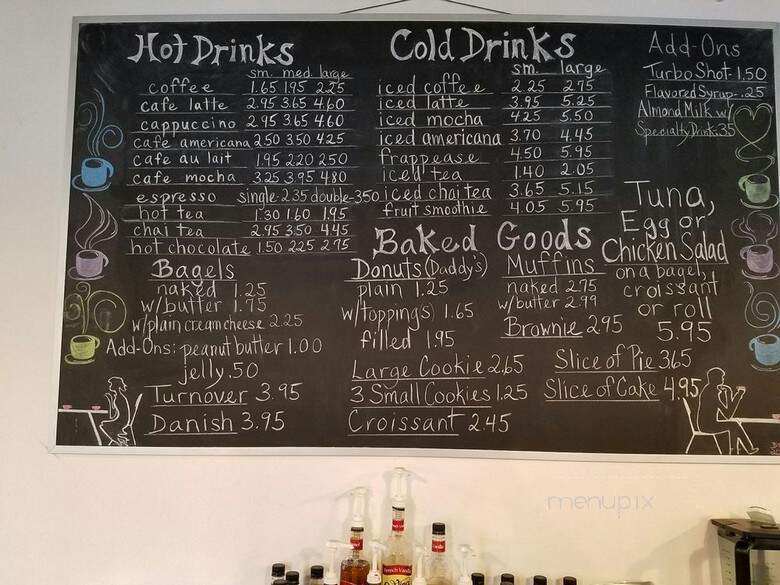 Hot Drinks
sm. med. large
coffee 1.65 1.95 2.25
cafe latte 2.95 3.65 4.60
cappuccino 2.95 3.65 4.60
cafe americana 2.50 3.50 4.25
cafe au lait 1.95 2.20 2.50
cafe mocha 3.25 3.95 4.80
espresso single-2.35 double-3.50
hot tea 1.30 1.60 1.95
chai tea 2.95 3.50 4.45
hot chocolate 1.50 2.25 2.75
Cold Drinks
sm. large
iced coffee 2.25 2.75
iced latte 3.95 5.25
iced mocha 4.25 5.50
iced americana 3.70 4.45
frappease 4.50 5.95
iced tea 1.40 2.05
iced chai tea 3.65 5.15
fruit smoothie 4.05 5.95
Add-Ons
Turbo Shot-1.50
Flavored Syrup-.25
Almond Milk w/
Specialty Drink.35
Tuna,
Egg or
Chicken Salad
on a bagel,
croissant
or roll
5.95
Baked Goods
Bagels
naked 1.25
w/butter 1.75
w/plain cream cheese 2.25
Add-Ons: peanut butter 1.00
jelly .50
Turnover 3.95
Danish 3.95
Donuts (Daddy's)
plain 1.25
w/topping(s) 1.65
filled 1.95
Large Cookie 2.65
3 Small Cookies 1.25
Croissant 2.45
Muffins
naked 2.75
w/butter 2.99
Brownie 2.95
Slice of Pie 3.65
Slice of Cake 4.95
menupix
French Vanilla